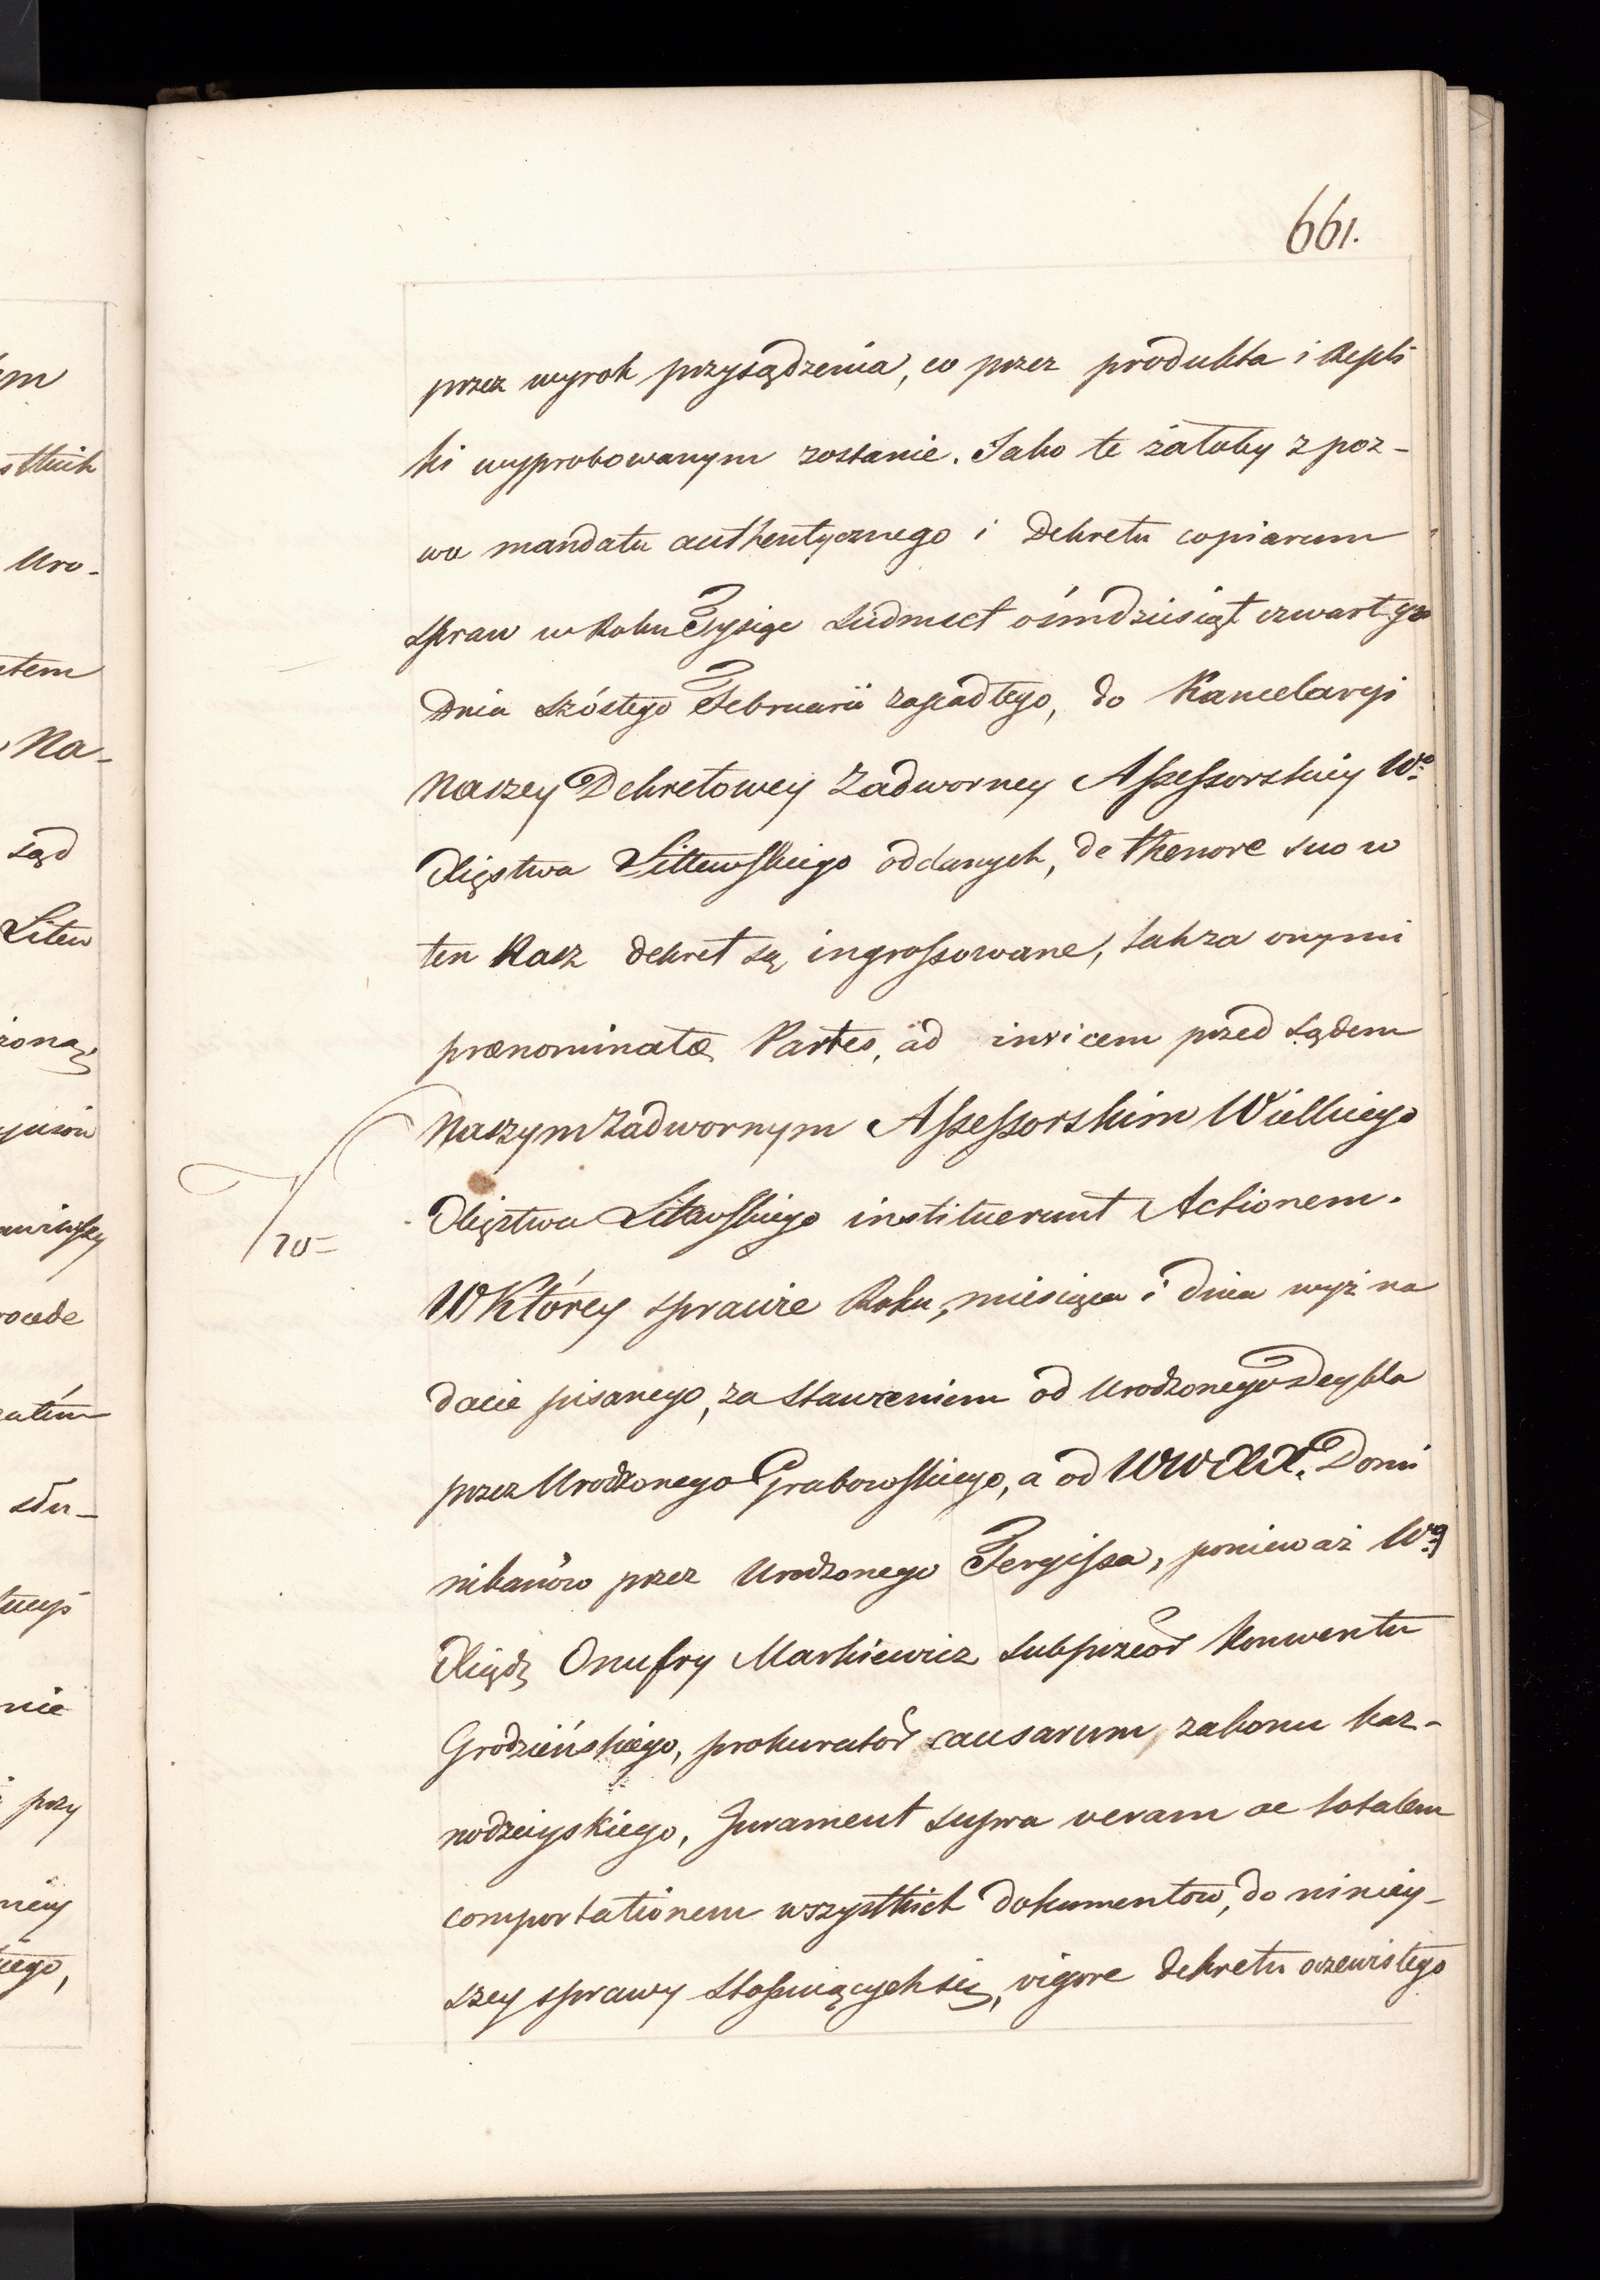 661.
przez wyrok przysądzenia, co przez produkta i Repli
ki wyprobowanym zostanie. Jako te żałoby z poz-
wu mandatu authentycznego i Dekretu copiarum
spraw w Roku Tysiąc siedmset ośmdziesiąt czwartym
Dnia szóstego Februarii zapadłego, do Kancelaryi
Naszey Dekretowey Zadworney Assessorskiey Wo
Xięstwa Littewskiego oddanych, de thenore suo w
ten Nasz dekret są ingrossowane, tak za onymi
prænominatæ Partes, ad invicem przed Sądem
Naszym Zadwornym Assessorskim Wielkiego
Xięstwa Litewskiego instituerunt Actionem.
W Którey sprawie Roku, miesiąca i dnia wyż na
dacie pisanego, za stawieniem od Urodzonego Deybla
przez Urodzonego Grabowskiego, a od WW XX. Domi
nikanów przez Urodzonego Fergissa, ponieważ Wny
Xiądz Onufry Markiewicz Subprzeor Konwentu
Grodzieńskiego, prokurator causarum, zakonu kaz-
nodzieyskiego, Jurament supra veram ac totalem
comportationem wszystkich dokumentów, do niniey-
szey sprawy stosuiących się, vigore dekretu oczewistego